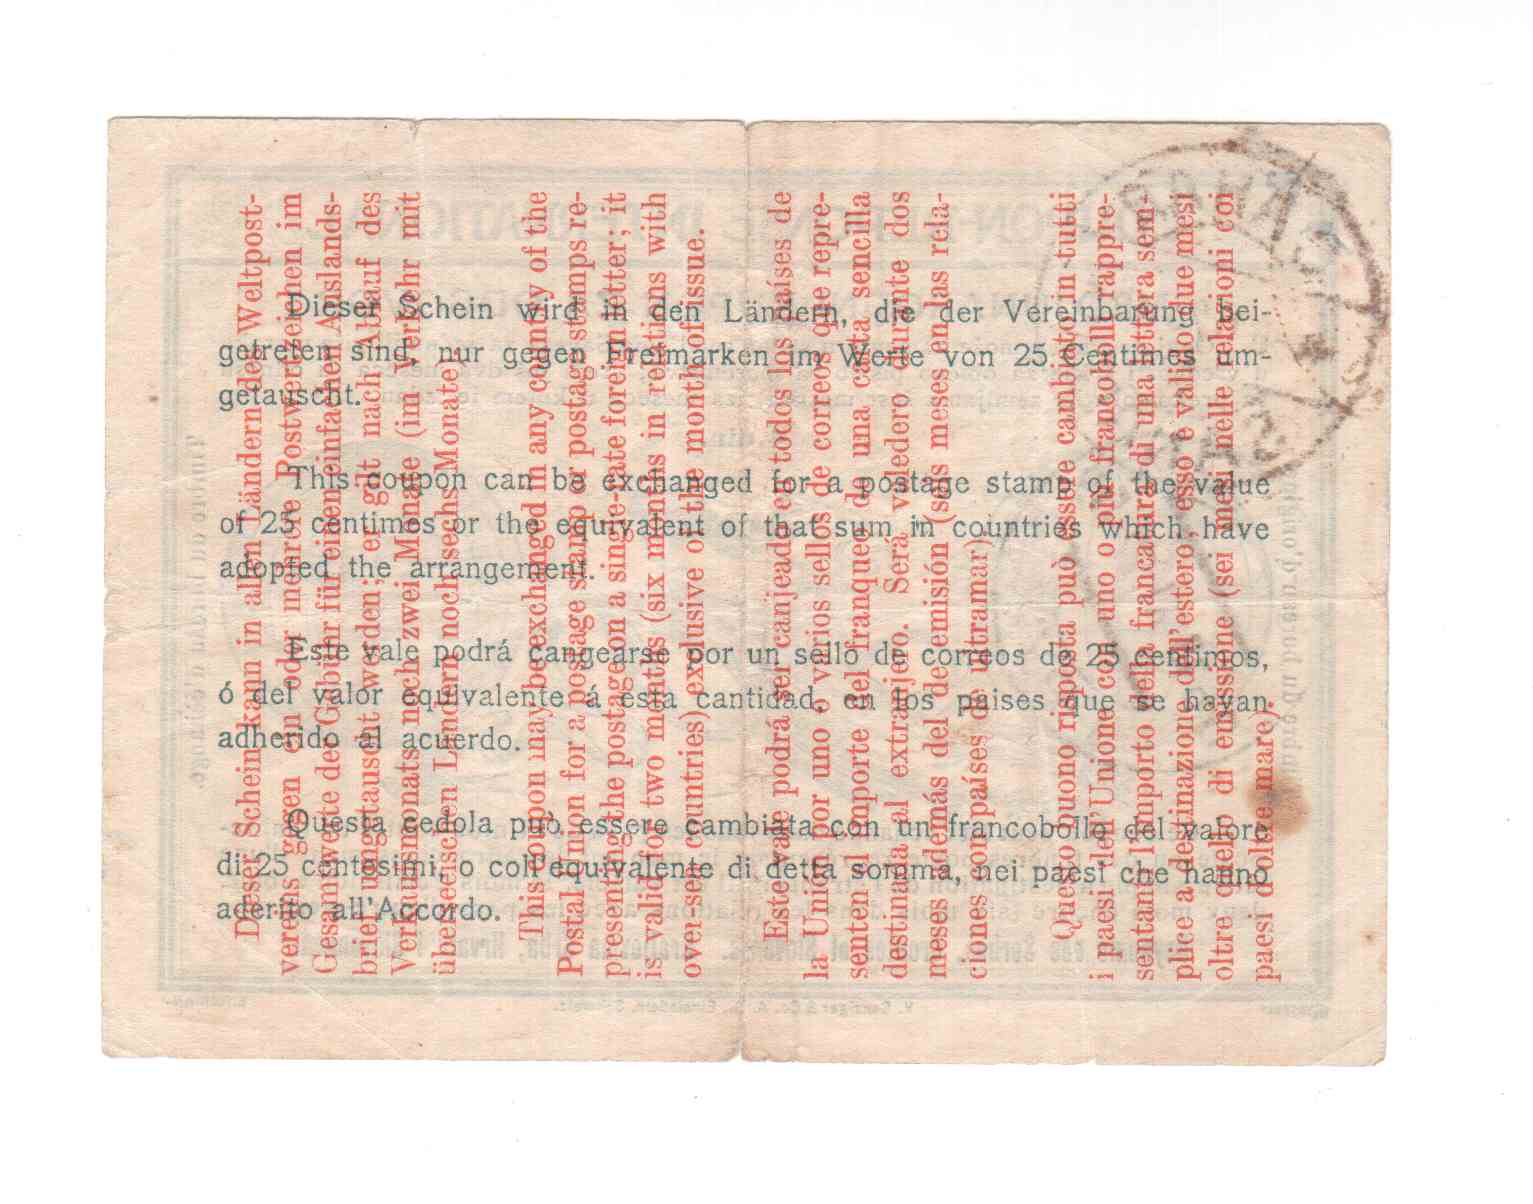 Dieser Schein wird in den Ländern, die der Vereinbarung bei-
getreten sind, nur gegen Freimarken im Werte von 25 Centimes um-
getauscht.
This coupon can be exchanged for a postage stamp of the value
of 25 centimes or the equivalent of that sum in countries which have
adopted the arrangement.
Este vale podrá cangearse por un sello de correos de 25 centimos,
ó del valor equivalente á esta cantidad, en los paises que se hayan
adherido al acuerdo.
Questa cedola può essere cambiata con un francobollo del valore
di 25 centesimi, o coll'equivalente di detta somma, nei paesi che hanno
aderito all'Accordo.
Dieser Schein kann in allen Ländern des Weltpost-
vereins gegen ein oder mehrere Postwertzeichen im
Gesamtwerte der Gebühr für einen einfachen Auslands-
brief umgetauscht werden; er gilt nach Ablauf des
Verkaufsmonats noch zwei Monate (im Verkehr mit
überseeischen Ländern noch sechs Monate).
This coupon may be exchanged in any country of the
Postal Union for a postage stamp or postage stamps re-
presenting the postage on a single-rate foreign letter; it
is valid for two months (six months in relations with
oversea countries) exclusive of the month of issue.
Este vale podrá ser canjeado en todos los países de
la Unión por uno o varios sellos de correos que repre-
senten el importe del franqueo de una carta sencilla
destinada al extranjero. Será valedero durante dos
meses además del de emisión (seis meses en las rela-
ciones con países de ultramar).
Questo buono risposta può essere cambiato in tutti
i paesi dell'Unione con uno o più francobolli rappre-
sentanti l'importo della francatura di una lettera sem-
plice a destinazione dell'estero; esso è valido due mesi
oltre quello di emissione (sei mesi nelle relazioni coi
paesi d'oltremare).